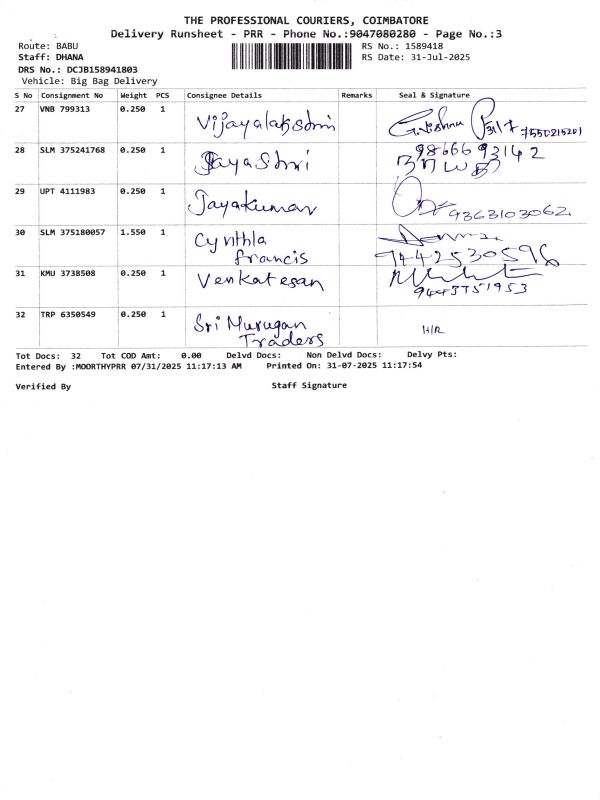 THE PROFESSIONAL COURIERS, COIMBATORE
Delivery Runsheet - PRR - Phone No.:9047080280 - Page No.:3
Route: BABU RS No.: 1589418
Staff: DHANA RS Date: 31-Jul-2025
DRS No.: DCJB158941803
Vehicle: Big Bag Delivery
S No Consignment No Weight PCS Consignee Details Remarks Seal & Signature
27 VNB 799313 0.250 1 Vijayalakshmi 7550215201
28 SLM 375241768 0.250 1 Jaya Shri 9866693142
29 UPT 4111983 0.250 1 Jayakumar 9363103062
30 SLM 375180057 1.550 1 Cynthia
francis 9442530596
31 KMU 3738508 0.250 1 Venkatesan 9443751953
32 TRP 6350549 0.250 1 Sri Murugan
Traders H/R
Tot Docs: 32 Tot COD Amt: 0.00 Delvd Docs: Non Delvd Docs: Delvy Pts:
Entered By :MOORTHYPRR 07/31/2025 11:17:13 AM Printed On: 31-07-2025 11:17:54
Verified By Staff Signature